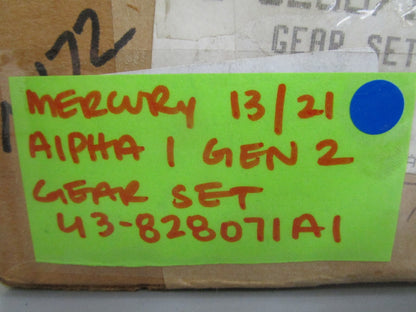 GEAR SET
MERCURY 13/21
AlPHA 1 GEN 2
GEAR SET
43-828071A1